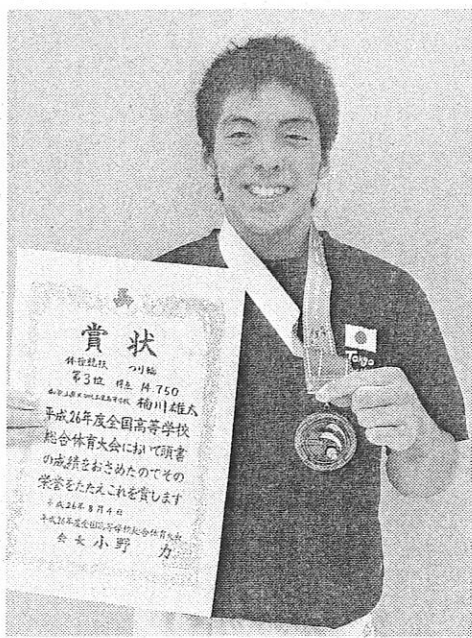 賞状
体操競技 つり輪
第3位 得点 14.750
桶川雄太
平成26年度全国高等学校
総合体育大会において頭書
の成績をおさめたのでその
栄誉をたたえこれを賞します
平成26年8月4日
平成26年度全国高等学校総合体育大会
会長 小野 力
Tokyo